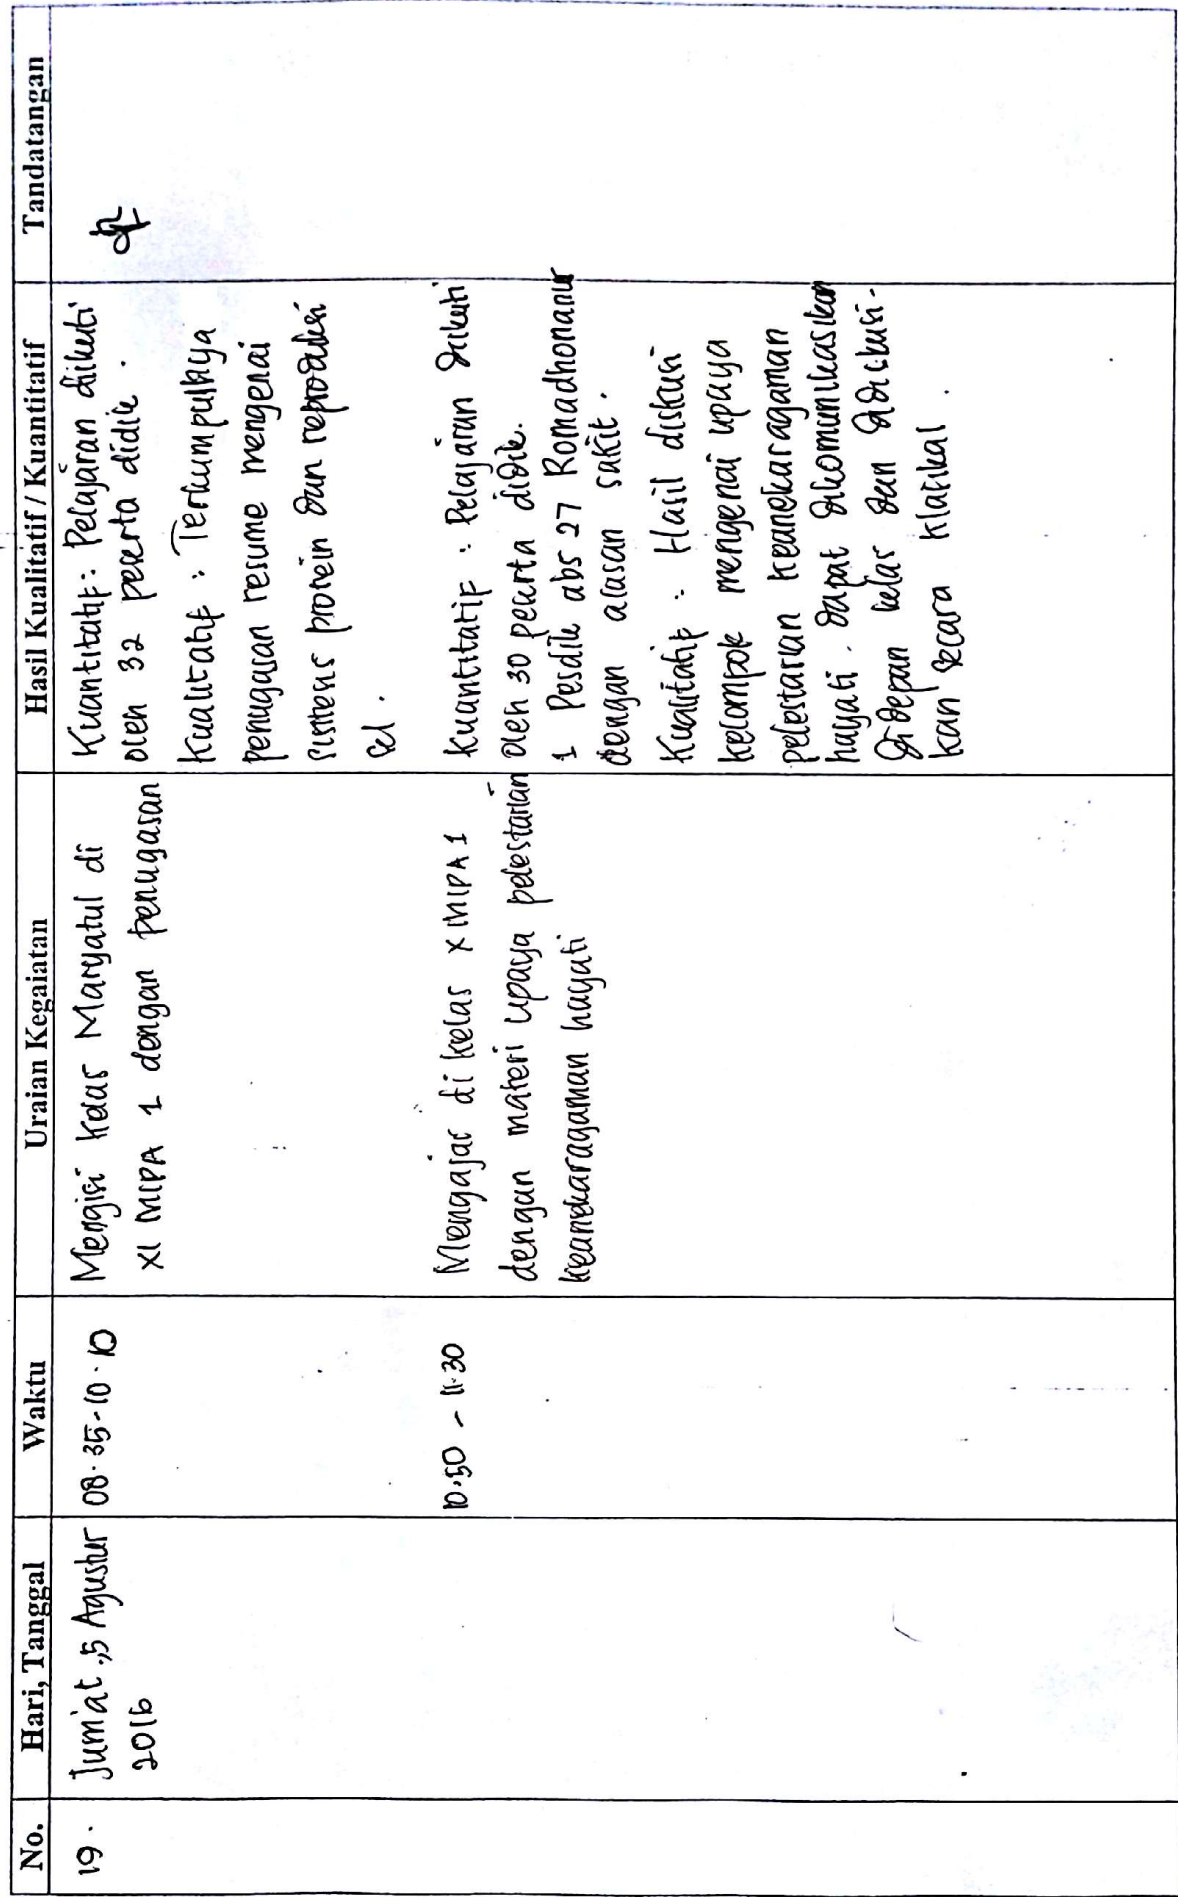 No. Hari, Tanggal Waktu Uraian Kegaiatan Hasil Kualitatif / Kuantitatif Tandatangan
19. Jum'at, 5 Agustus
2016
08.35-10.10
Mengisi kelas Maryatul di
XI MIPA 1 dengan penugasan
Kuantitatif : Pelajaran diikuti
oleh 32 peserta didik.
Kualitatif : Terkumpulnya
penugasan resume mengenai
sintesis protein dan reproduksi
sel.
10.50 - 11.30
Mengajar di kelas X MIPA 1
dengan materi upaya pelestarian
keanekaragaman hayati
Kuantitatif : Pelajaran diikuti
oleh 30 peserta didik.
1 Pesdik abs 27 Romadhonanur
dengan alasan sakit.
Kualitatif : Hasil diskusi
kelompok mengenai upaya
pelestarian keanekaragaman
hayati. dapat dikomunikasikan
di depan kelas dan didiskusi-
kan secara klasikal.